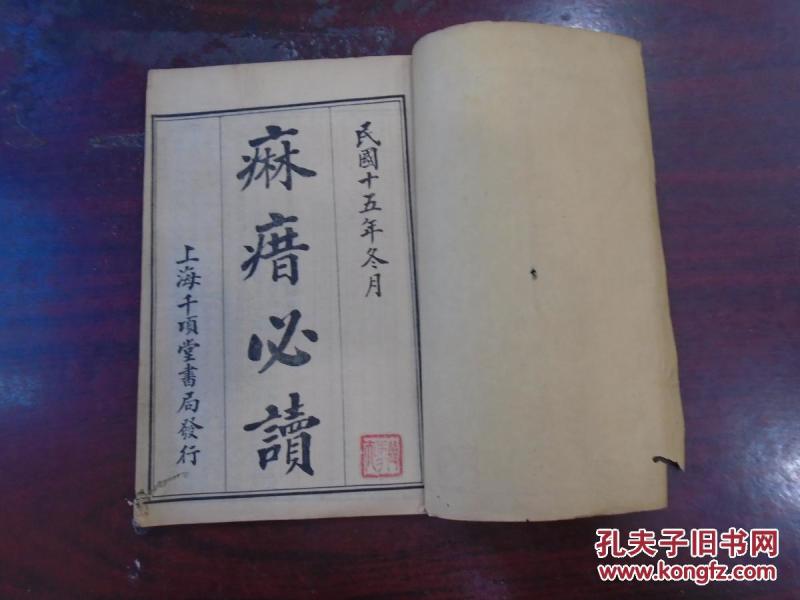 民國十五年冬月
痳瘄必讀
上海千頃堂書局發行
孔夫子旧书网
www.kongfz.com